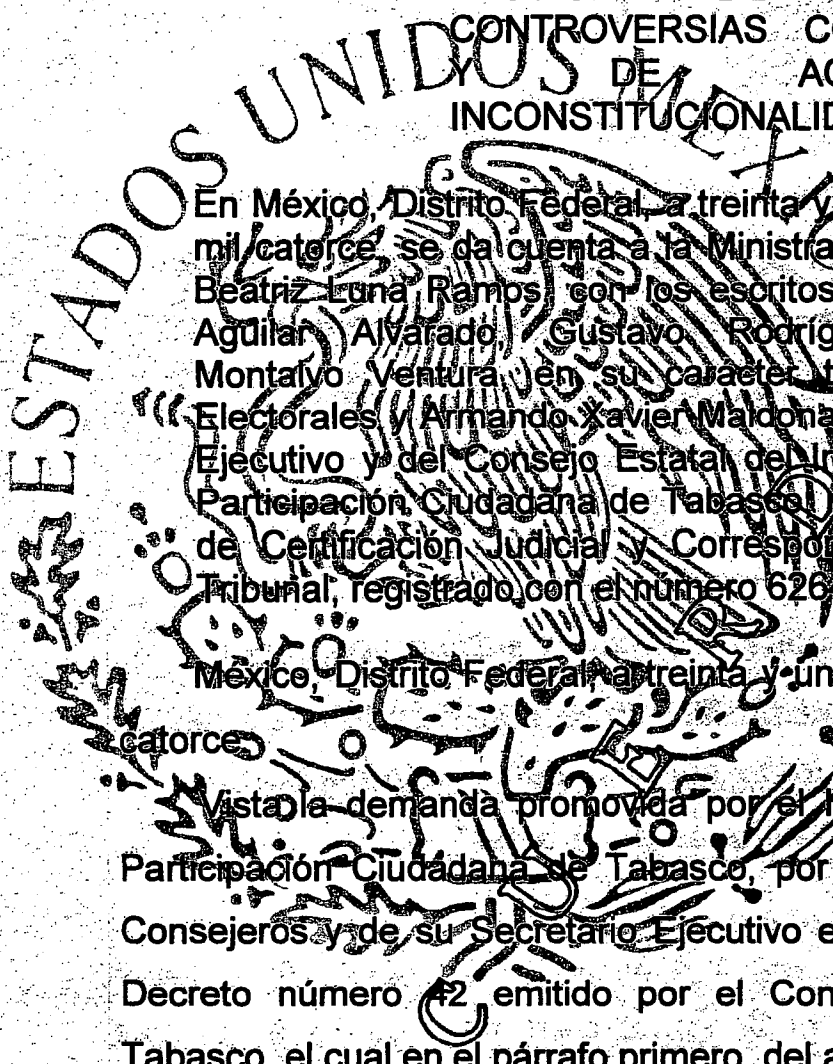 CONTROVERSIAS CO
Y DE AC
INCONSTITUCIONALID
ESTADOS UNIDOS MEXI
En México, Distrito Federal, a treinta y
mil catorce, se da cuenta a la Ministra
Beatriz Luna Ramos, con los escritos
Aguilar Alvarado, Gustavo Rodríg
Montalvo Ventura, en su carácter t
Electorales y Armando Xavier Maldona
Ejecutivo y del Consejo Estatal del In
Participación Ciudadana de Tabasco.
de Certificación Judicial y Correspon
Tribunal, registrado con el número 626
México, Distrito Federal, a treinta y un
catorce.
Vista la demanda promovida por el I
Participación Ciudadana de Tabasco, por
Consejeros y de su Secretario Ejecutivo e
Decreto número 42 emitido por el Con
Tabasco, el cual en el párrafo primero, del a